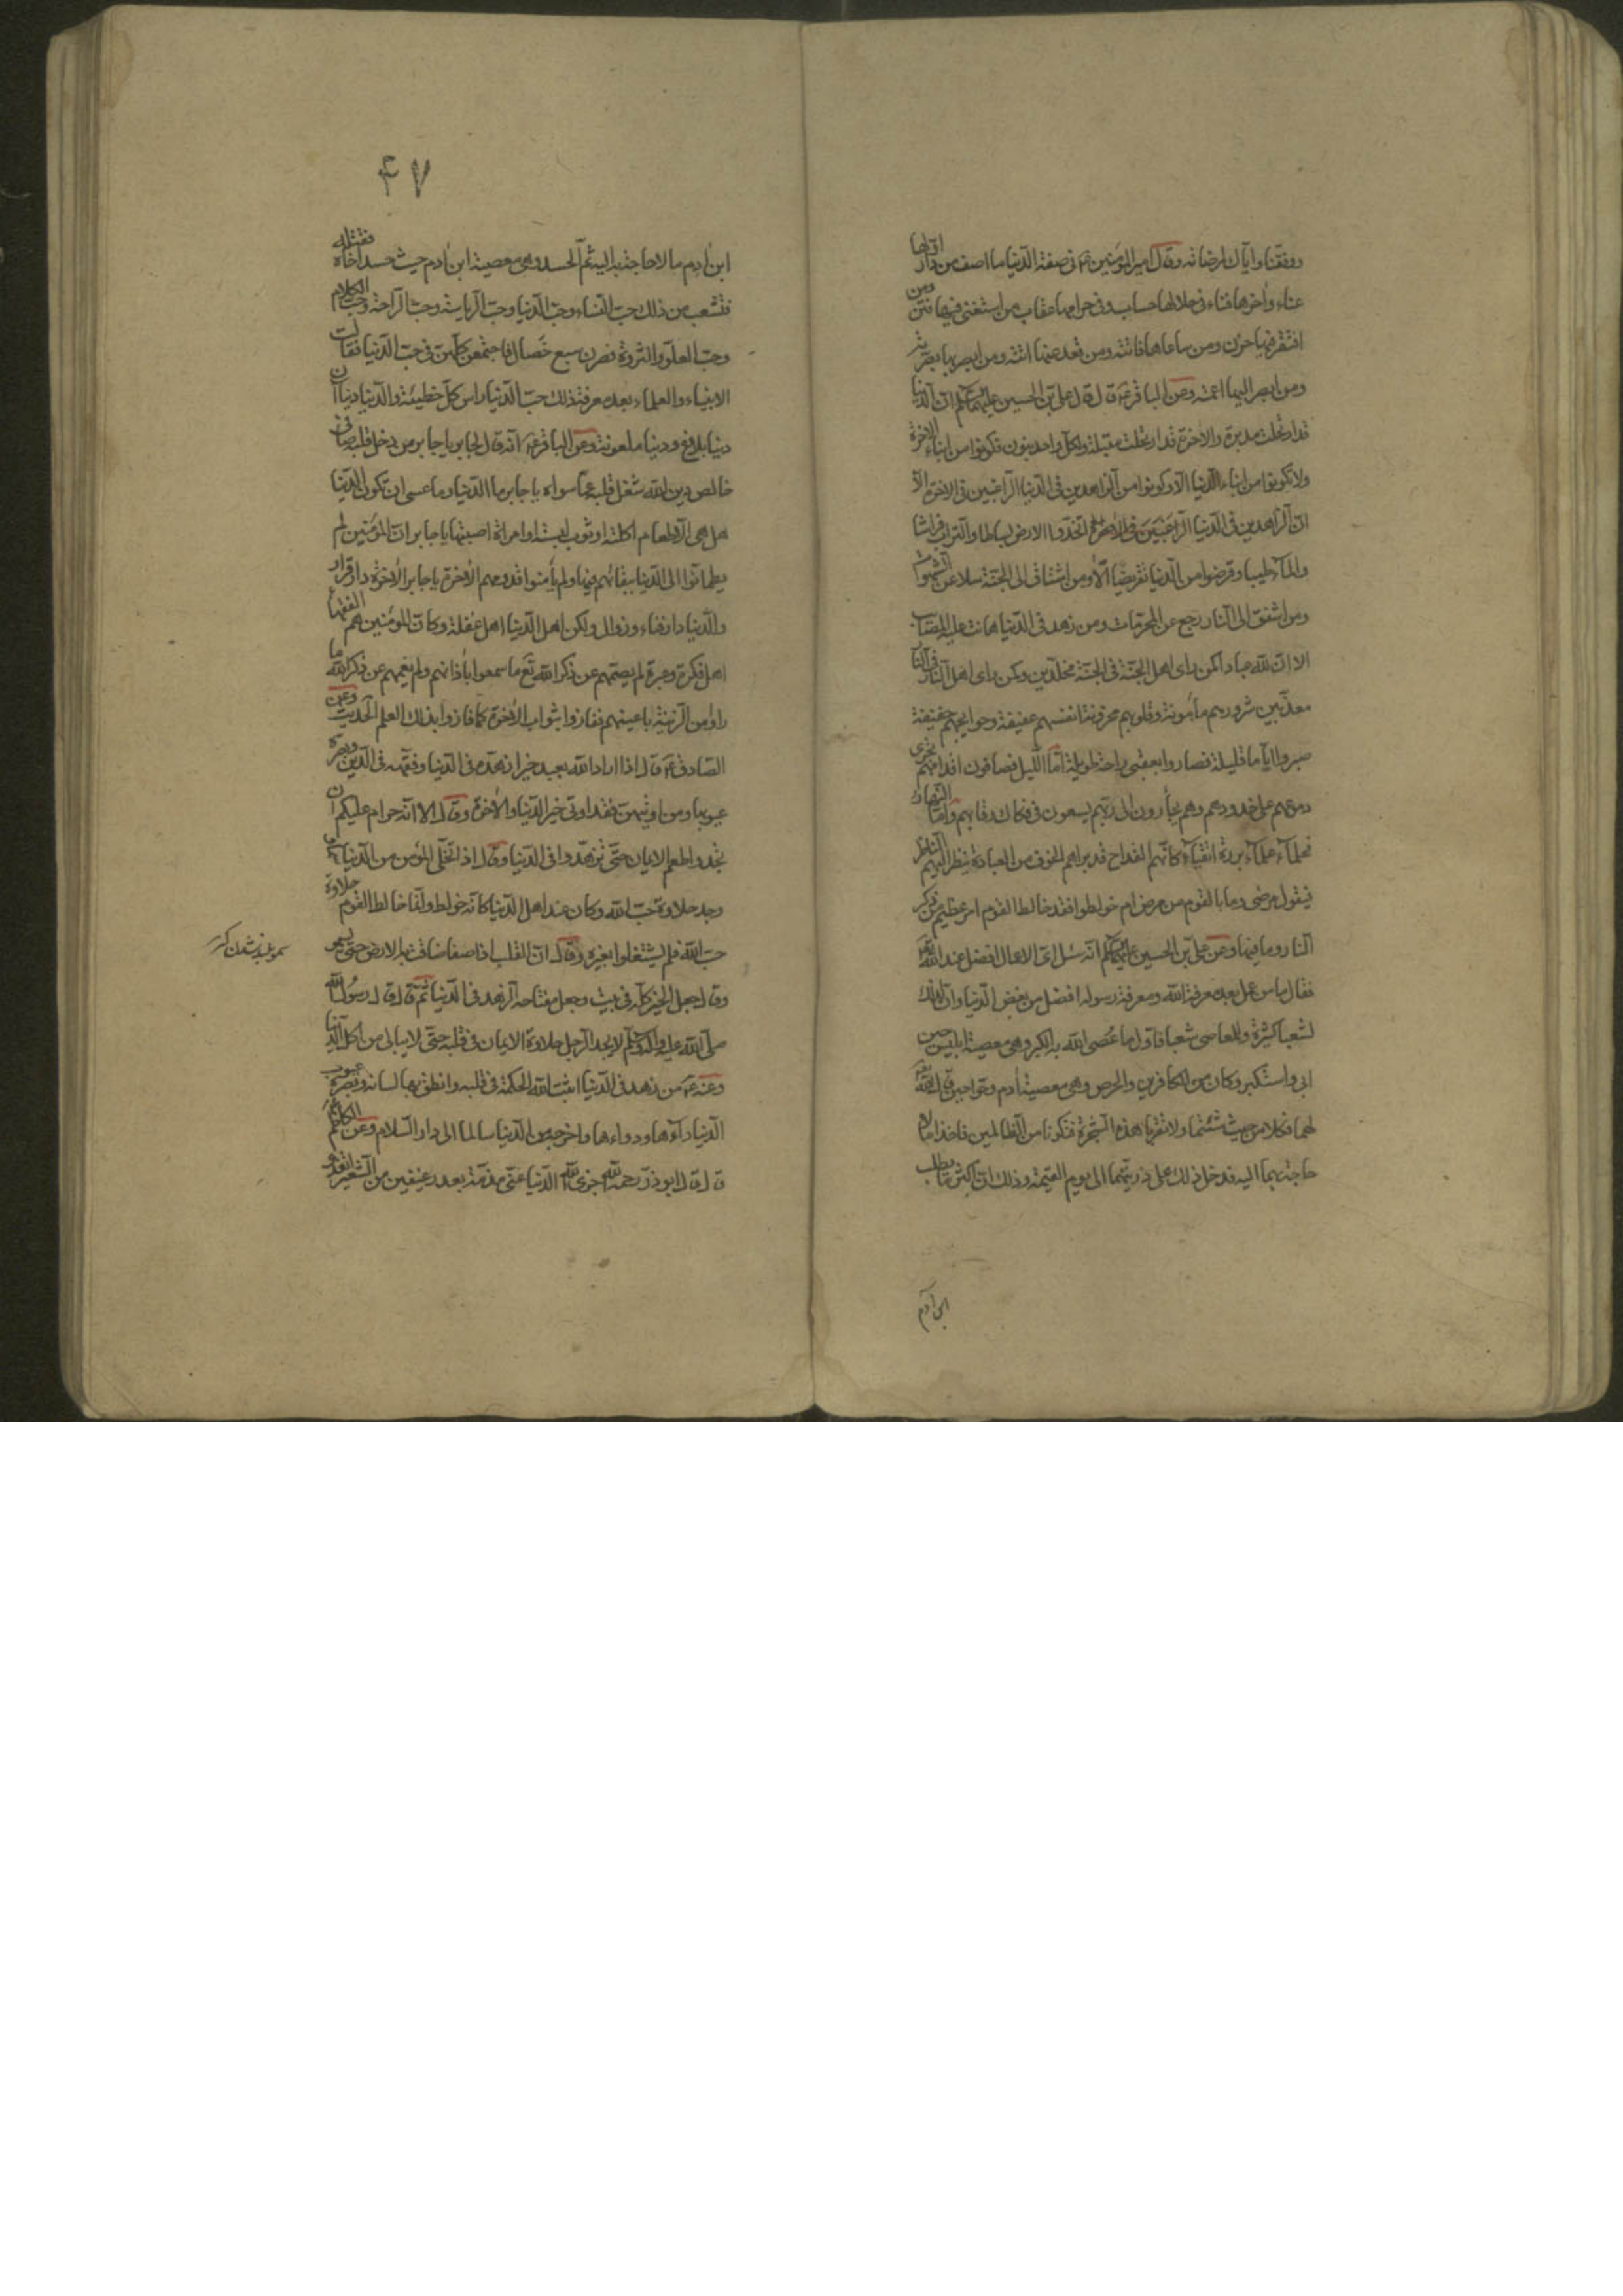 ووفقنا وایاك لمرضاته وقال امیرالمؤمنین ع فی صفة الدّنیا ما اصف من دار اوّلها
عناء واٰخرها فناء فی حلالها حساب وفی حرامها عقاب من استغنی فیها فتن ومن
افتقر فیها حزن ومن ساعاها فاتته ومن قعد عنها اتته ومن ابصر بها بصّرته
ومن ابصر الیها اعمته وعن الباقر ع قال قال علی بن الحسین علیهما السلم انّ الدّنیا
قد ارتحلت مدبرة والاٰخرة قد ارتحلت مقبلة ولكلّ واحد بنون فكونوا من ابناء الاٰخرة
ولا تكونوا من ابناء الدّنیا الا وكونوا من الزّاهدین فی الدّنیا الرّاغبین فی الاٰخرة الا
انّ الزّاهدین فی الدّنیا الرّاغبین فی الاٰخرة اتخذوا الارض بساطا والتراب فراشا
والماۤء طیبا وقرضوا من الدّنیا تقریضا الا ومن اشتاق الی الجنّة سلا عن الشّهوات
ومن اشفق الی النار رجع عن المحرّمات ومن زهد فی الدّنیا هانت علیه المصائب
الا انّ للّٰه عبادا كمن رای اهل الجنّة فی الجنّة مخلّدین وكمن رای اهل النّار فی النّار
معذّبین شرورهم مأمونة وقلوبهم محزونة انفسهم عفیفة وحوایجهم خفیفة
صبروا ایّاما قلیلة فصاروا بعقبی راحة طویلة امّا اللّیل فصافون اقدامهم تجری
دموعهم علی خدودهم وهم یجأرون الی ربّهم یسعون فی فكاك رقابهم وامّا النّهار
فحلماۤء علماۤء بررة اتقیاۤء كانّهم القداح قد براهم الخوف من العبادة ینظر الیهم النّاظر
فیقول مرضی وما بالقوم من مرض ام خولطوا فقد خالط القوم امر عظیم من ذكر
النّار وما فیها وعن علیّ بن الحسین علیهما السلم انّه سئل ایّ الاعمال افضل عند اللّٰه تع
فقال ما من عمل بعد معرفة اللّٰه ومعرفة رسوله افضل من بغض الدّنیا وانّ لذلك
لشعبا كثیرة وللمعاصی شعبا فاوّل ما عُصی اللّٰه به الكبر وهی معصیة ابلیس حین
ابی واستكبر وكان من الكافرین والحرص وهی معصیة اٰدم وحوّا حین قال اللّٰه تع
لهما فكلا من حیث شئتما ولا تقربا هذه الشّجرة فتكونا من الظّالمین فاخذا ما لا
حاجة بهما الیه فدخل ذلك علی ذریّتهما الی یوم القیمة وذلك انّ اكثر ما یطلب
ابن آدم
۴۷
ابن اٰدم ما لا حاجة به الیه ثمّ الحسد وهی معصیة ابن اٰدم حیث حسد اخاه فقتله
فتشعب من ذلك حبّ النّساء وحبّ الدّنیا وحبّ الرّیاسة وحبّ الرّاحة وحبّ الكلام
وحبّ العلوّ والثروة فصرن سبع خصال فاجتمعن كلّهنّ فی حبّ الدّنیا فقالت
الانبیاء والعلماء بعد معرفة ذلك حبّ الدّنیا راس كلّ خطیئة والدّنیا دنیاان
دنیا بلاغ ودنیا ملعونة وعن الباقر ع انّه قال لجابر یا جابر من دخل قلبه صافی
خالص دین اللّٰه شغل قلبه عمّا سواه یا جابر ما الدّنیا وما عسی ان تكون الدّنیا
هل هی الّا طعام اكلته او ثوب لبسته او امراة اصبتها یا جابر انّ المؤمنین لم
یطمانّوا الی الدّنیا ببقائهم فیها ولم یأمنوا قدومهم الاٰخرة یا جابر الاٰخرة دار قرار
والدّنیا دار فناء وزوال ولكن اهل الدّنیا اهل غفلة وكانّ المؤمنین هم الفقهاء
اهل فكرة وعبرة لم یصمّهم عن ذكر اللّٰه تع ما سمعوا باٰذانهم ولم یعمهم عن ذكر اللّٰه ما
راوا من الزّینة باعینهم ففازوا بثواب الاٰخرة كما فازوا بذلك العلم الحدیث وعن
الصّادق ع قال اذا اراد اللّٰه بعبد خیرا زهّده فی الدّنیا وفقّهه فی الدّین وبصّره
عیوبها ومن اوتیهنّ فقد اوتی خیر الدّنیا والاٰخرة وقال الا انّه حرام علیكم ان
تجدوا طعم الایمان حتّی تزهّدوا فی الدّنیا وقال اذا تخلّی المؤمن من الدّنیا سما
وجد حلاوة حبّ اللّٰه وكان عند اهل الدّنیا كانّه خولط وانّما خالط القوم حلاوة
حبّ اللّٰه فلم یشتغلوا بغیره وقال انّ القلب اذا صفا ضاقت به الارض حتّی یسمو
وقال جعل الخیر كلّه فی بیت وجعل مفتاحه الزّهد فی الدّنیا ثمّ قال قال رسول اللّٰه
صلّی اللّٰه علیه واٰله وسلّم لا یجد الرّجل حلاوة الایمان فی قلبه حتّی لا یبالی من اكل الدّنیا
وعنه ع من زهد فی الدّنیا اثبت اللّٰه الحكمة فی قلبه وانطق بها لسانه وبصّره عیوب
الدّنیا داۤءها ودواءها واخرجه من الدّنیا سالما الی دار السّلام وعن الكاظم ع
قال قال ابوذرّ رحمه اللّٰه جزی اللّٰه الدّنیا عنّی مذمّة بعد رغیفین من الشّعیر اتغدّی
سمو بلند شدن كنز